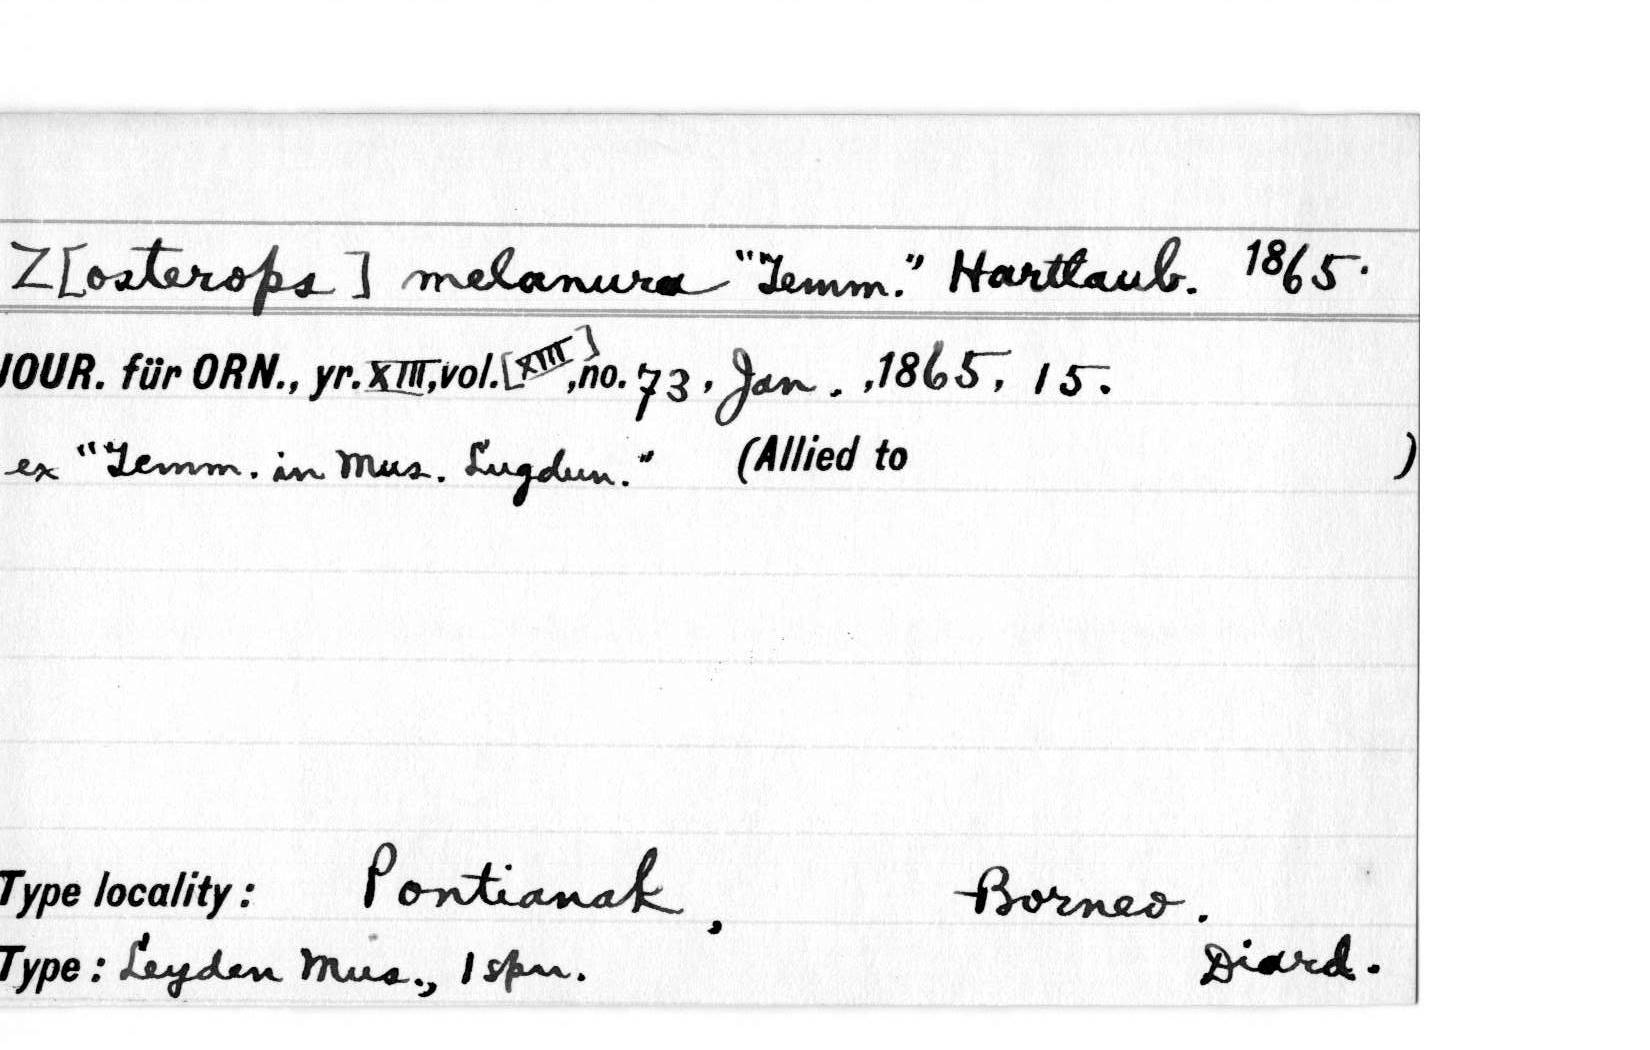 Z[osterops] melanura "Temm." Hartlaub. 1865.
JOUR. für ORN., yr. XIII, vol. [XIII], no. 73, Jan., 1865, 15.
ex "Temm. in Mus. Lugdun." (Allied to )
Type locality: Pontianak, Borneo.
Type: Leyden Mus., 1 spn. Diard.